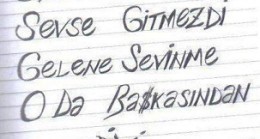 Sevse Gitmezdi
Gelene Sevinme
O Da Başkasından